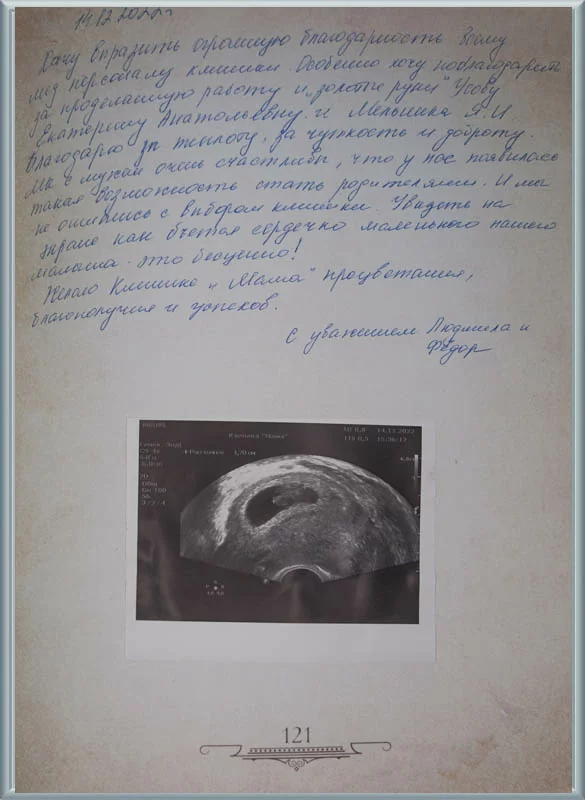 14.12.2022г
Хочу выразить огромную благодарность всему
мед персоналу клиники. Особенно хочу поблагодарить
за проделанную работу и „золотые руки" Усову
Екатерину Анатольевну. и Мельника Я.И
Благодарю за теплоту, за чуткость и доброту.
Мы с мужем очень счастливы, что у нас появилась
такая возможность стать родителями. И мы
не ошиблись с выбором клиники. Увидеть на
экране как бьется сердечко маленького нашего
малыша - это бесценно!
Желаю Клинике „Мама" процветания,
благополучия и успехов.
С уважением Людмила и
Фёдор
Клиника "Мама"
MI 0,8 14.12.2022
TIS 0,5 15:36:17
+ Расстояние 1,70 см
2D
121